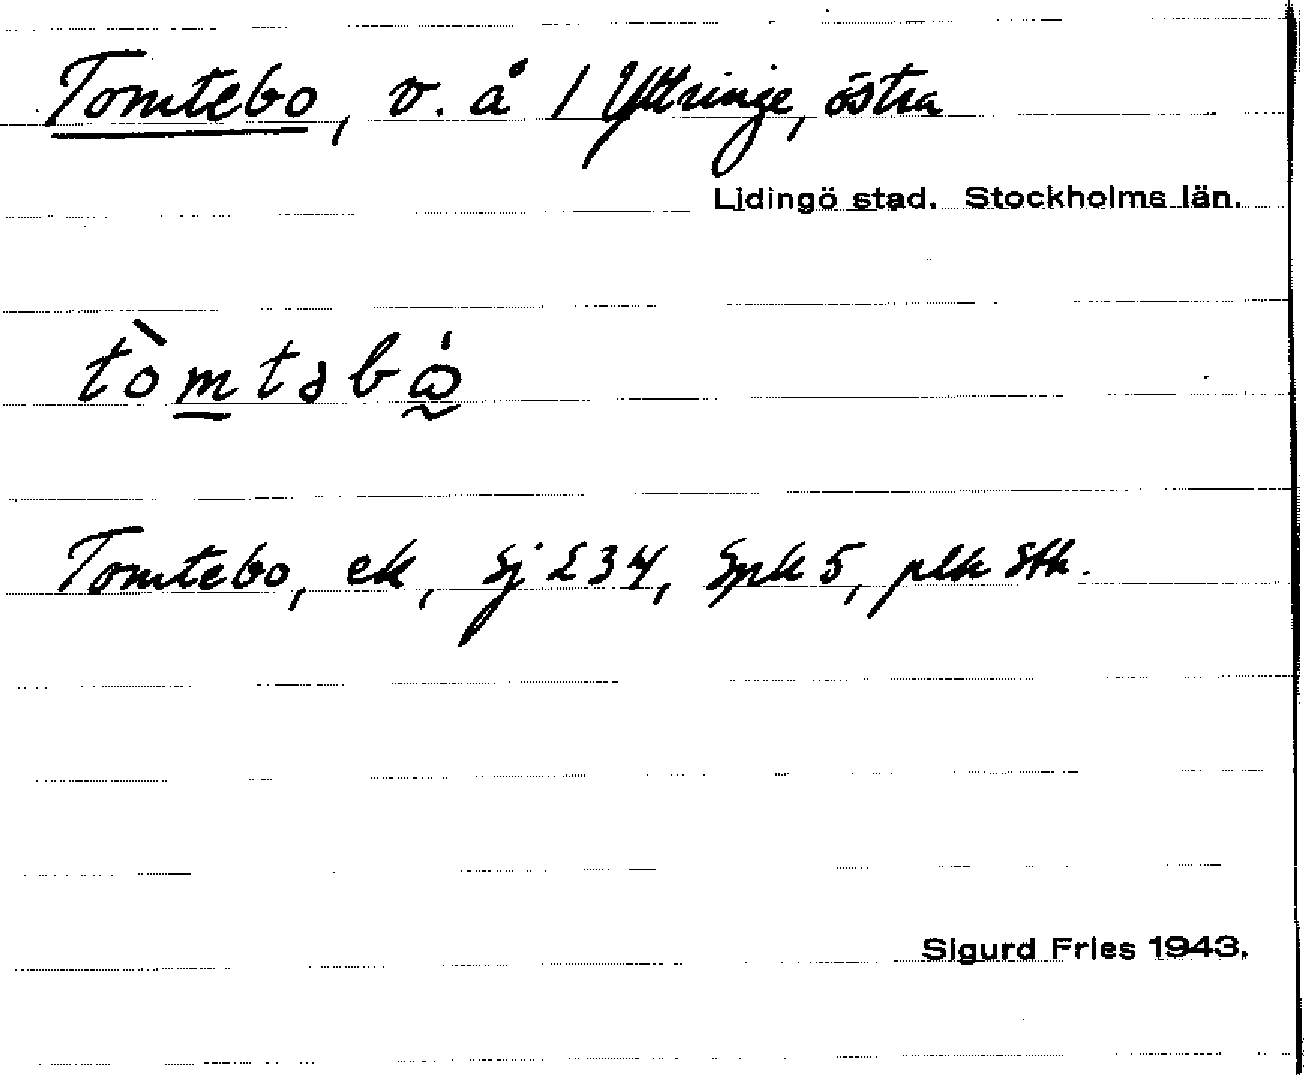 Tomtebo, v. å / Yttringe, östra
Lidingö stad. Stockholms län.
tòmtəbώ̣
Tomtebo, ek, Sj £34, Spk 5, plk Sth.
Sigurd Fries 1943.